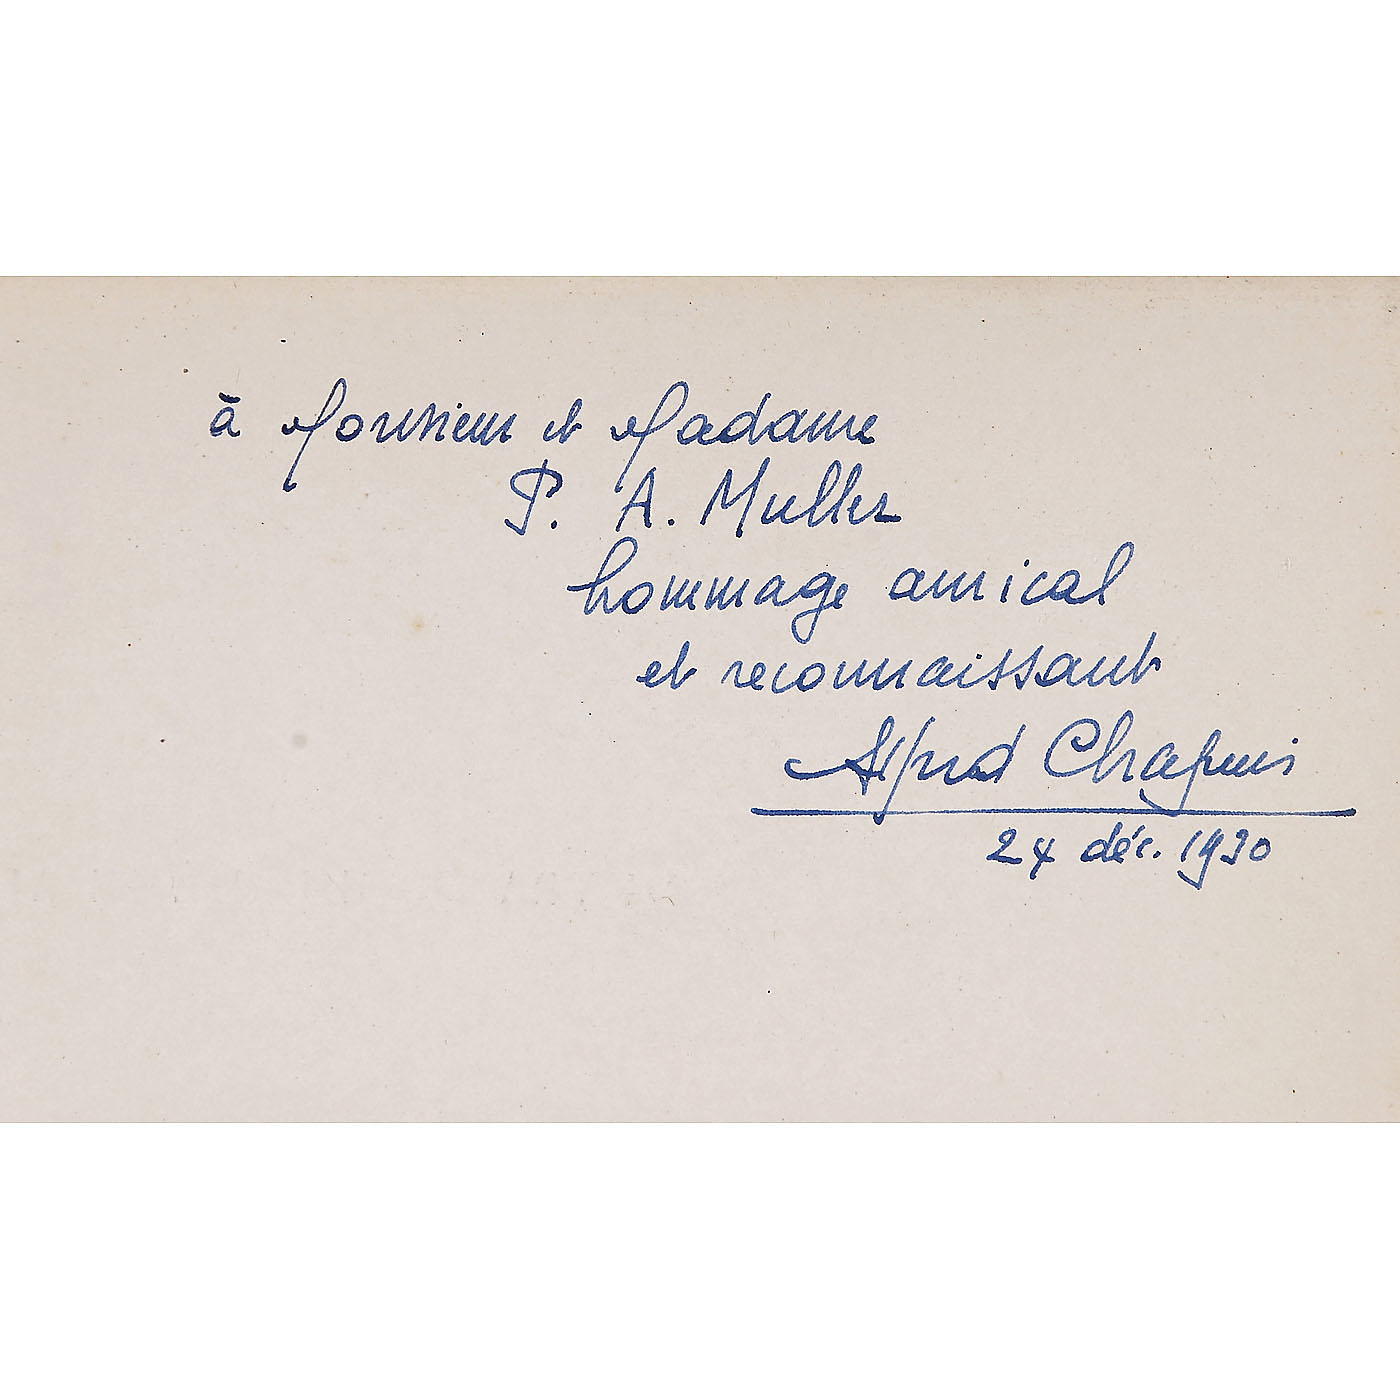 à Monsieur et Madame
P. A. Muller
hommage amical
et reconnaissant
Alfred Chapuis
24 déc. 1930